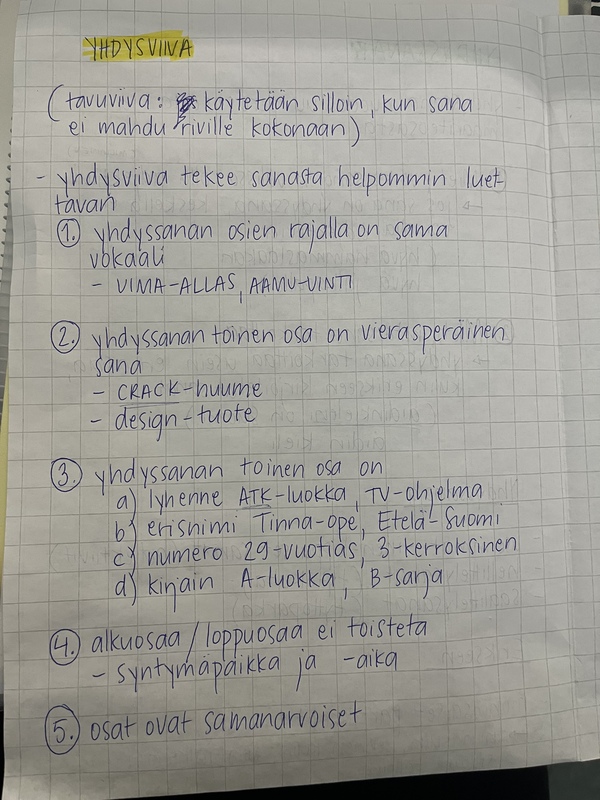 YHDYSVIIVA
(tavuviiva: käytetään silloin, kun sana
ei mahdu riville kokonaan)
- yhdysviiva tekee sanasta helpommin luet-
tavan
1. yhdyssanan osien rajalla on sama
vokaali
- VIMA-ALLAS, AAMU-UINTI
2. yhdyssanan toinen osa on vierasperäinen
sana
- CRACK-huume
- design-tuote
3. yhdyssanan toinen osa on
a) lyhenne ATK-luokka, TV-ohjelma
b) erisnimi Tinna-ope, Etelä-Suomi
c) numero 29-vuotias, 3-kerroksinen
d) kirjain A-luokka, B-sarja
4. alkuosaa/loppuosaa ei toisteta
- syntymäpaikka ja -aika
5. osat ovat samanarvoiset